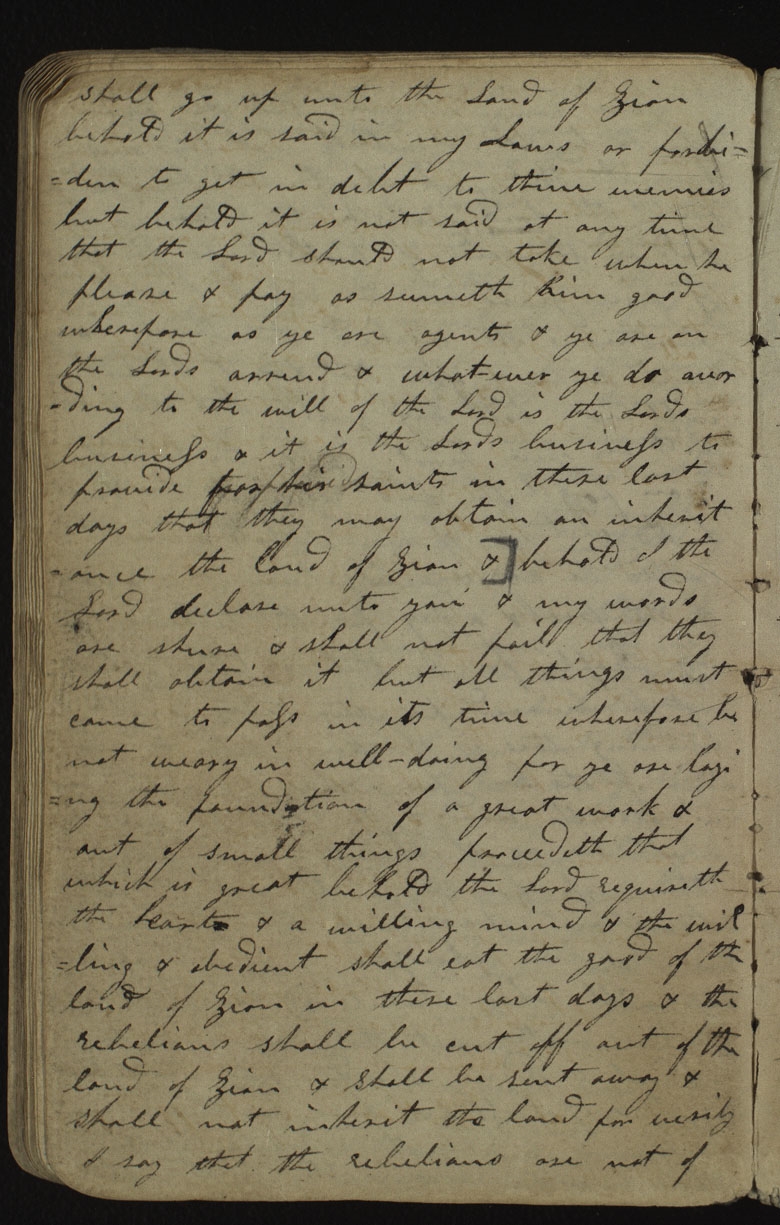 shall go up unto the Land of Zion
behold it is said in my Laws or forbi=
=den to get in debt to thine enemies
but behold it is not said at any time
that the Lord should not take when he
please & pay as seemeth him good
wherefore as ye are agents & ye are on
the Lords arrend & what-ever ye do accor
=ding to the will of the Lord is the Lords
business & it is the Lords business to
provide for his saints in these last
days that they may obtain an inherit
=ance the land of Zion &] behold I the
Lord declare unto you & my words
are shure & shall not fail that they
shall obtain it but all things must
come to pass in its time wherefore be
not weary in well-doing for ye are layi
=ng the foundation of a great work &
out of small things proceedeth that
which is great behold the Lord requireth
the hearts & a willing mind & the wil
=ling & obedient shall eat the good of the
land of Zion in these last days & the
rebelians shall be cut off out of the
land of Zion & shall be sent away &
shall not inherit the land for verily
I say that the rebelians are not of